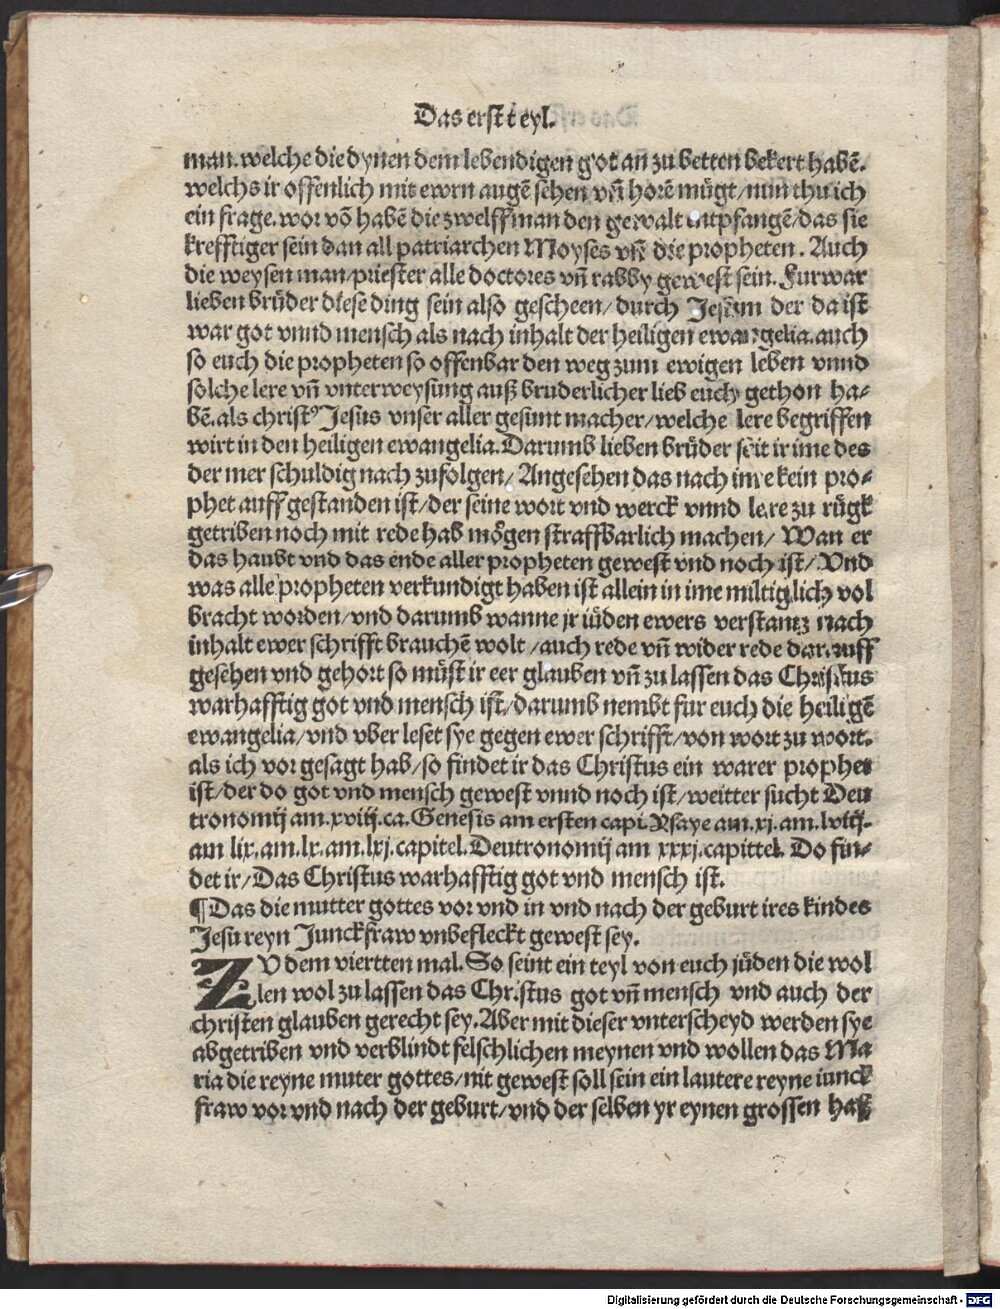 Das erst teyl.
man. welche die dynen dem lebendigen got an zu betten bekert habē.
welchs ir offenlich mit ewrn augē sehen vñ horē mügt/nun thu ich
ein frage. wor vō habē die zwelff man den gewalt entpfangē/das sie
krefftiger sein dan all patriarchen Moyses vñ die propheten. Auch
die weysen man/priester alle doctores vñ rabby gewest sein. Furwar
lieben brüder diese ding sein also gescheen/durch Jesum der da ist
war got vnnd mensch als nach inhalt der heiligen ewangelia. auch
so euch die propheten so offenbar den weg zum ewigen leben vnnd
solche lere vñ vnterweysung auß bruderlicher lieb euch gethon ha⸗
bē. als christꝰ Jesus vnser aller gesunt macher/welche lere begriffen
wirt in den heiligen ewangelia. Darumb lieben brüder seit ir ime des
der mer schuldig nach zufolgen/Angesehen das nach ime kein pro⸗
phet auff gestanden ist/der seine wort vnd werck vnnd lere zu rügk
getriben noch mit rede hab mögen straffbarlich machen/Wan er
das haubt vnd das ende aller propheten gewest vnd noch ist/Vnd
was alle propheten verkundigt haben ist allein in ime miltiglich vol
bracht worden/vnd darumb wanne jr iüden ewers verstantz nach
inhalt ewer schrifft brauchē wolt/auch rede vñ wider rede darauff
gesehen vnd gehort so müst ir eer glauben vñ zu lassen das Christus
warhafftig got vnd mensch ist/darumb nembt fur euch die heiligē
ewangelia/vnd vber leset sye gegen ewer schrifft/von wort zu wort.
als ich vor gesagt hab/so findet ir das Christus ein warer prophet
ist/der do got vnd mensch gewest vnnd noch ist/weitter sucht Deu
tronomij am. xviij. ca. Genesis am ersten capi. Ysaye am. xj. am. lviij.
am lix. am. lx. am. lxj. capitel. Deutronomij am xxxj. capittel. Do fin⸗
det ir/Das Christus warhafftig got vnd mensch ist.
¶Das die mutter gottes vor vnd in vnd nach der geburt ires kindes
Jesu reyn Junckfraw vnbefleckt gewest sey.
ZV dem viertten mal. So seint ein teyl von euch jüden die wol
len wol zu lassen das Christus got vñ mensch vnd auch der
christen glauben gerecht sey. Aber mit dieser vnterscheyd werden sye
abgetriben vnd verblindt felschlichen meynen vnd wollen das Ma
ria die reyne muter gottes/nit gewest soll sein ein lautere reyne iunck
fraw vor vnd nach der geburt/vnd der selben yr eynen grossen haß
Digitalisierung gefördert durch die Deutsche Forschungsgemeinschaft - DFG